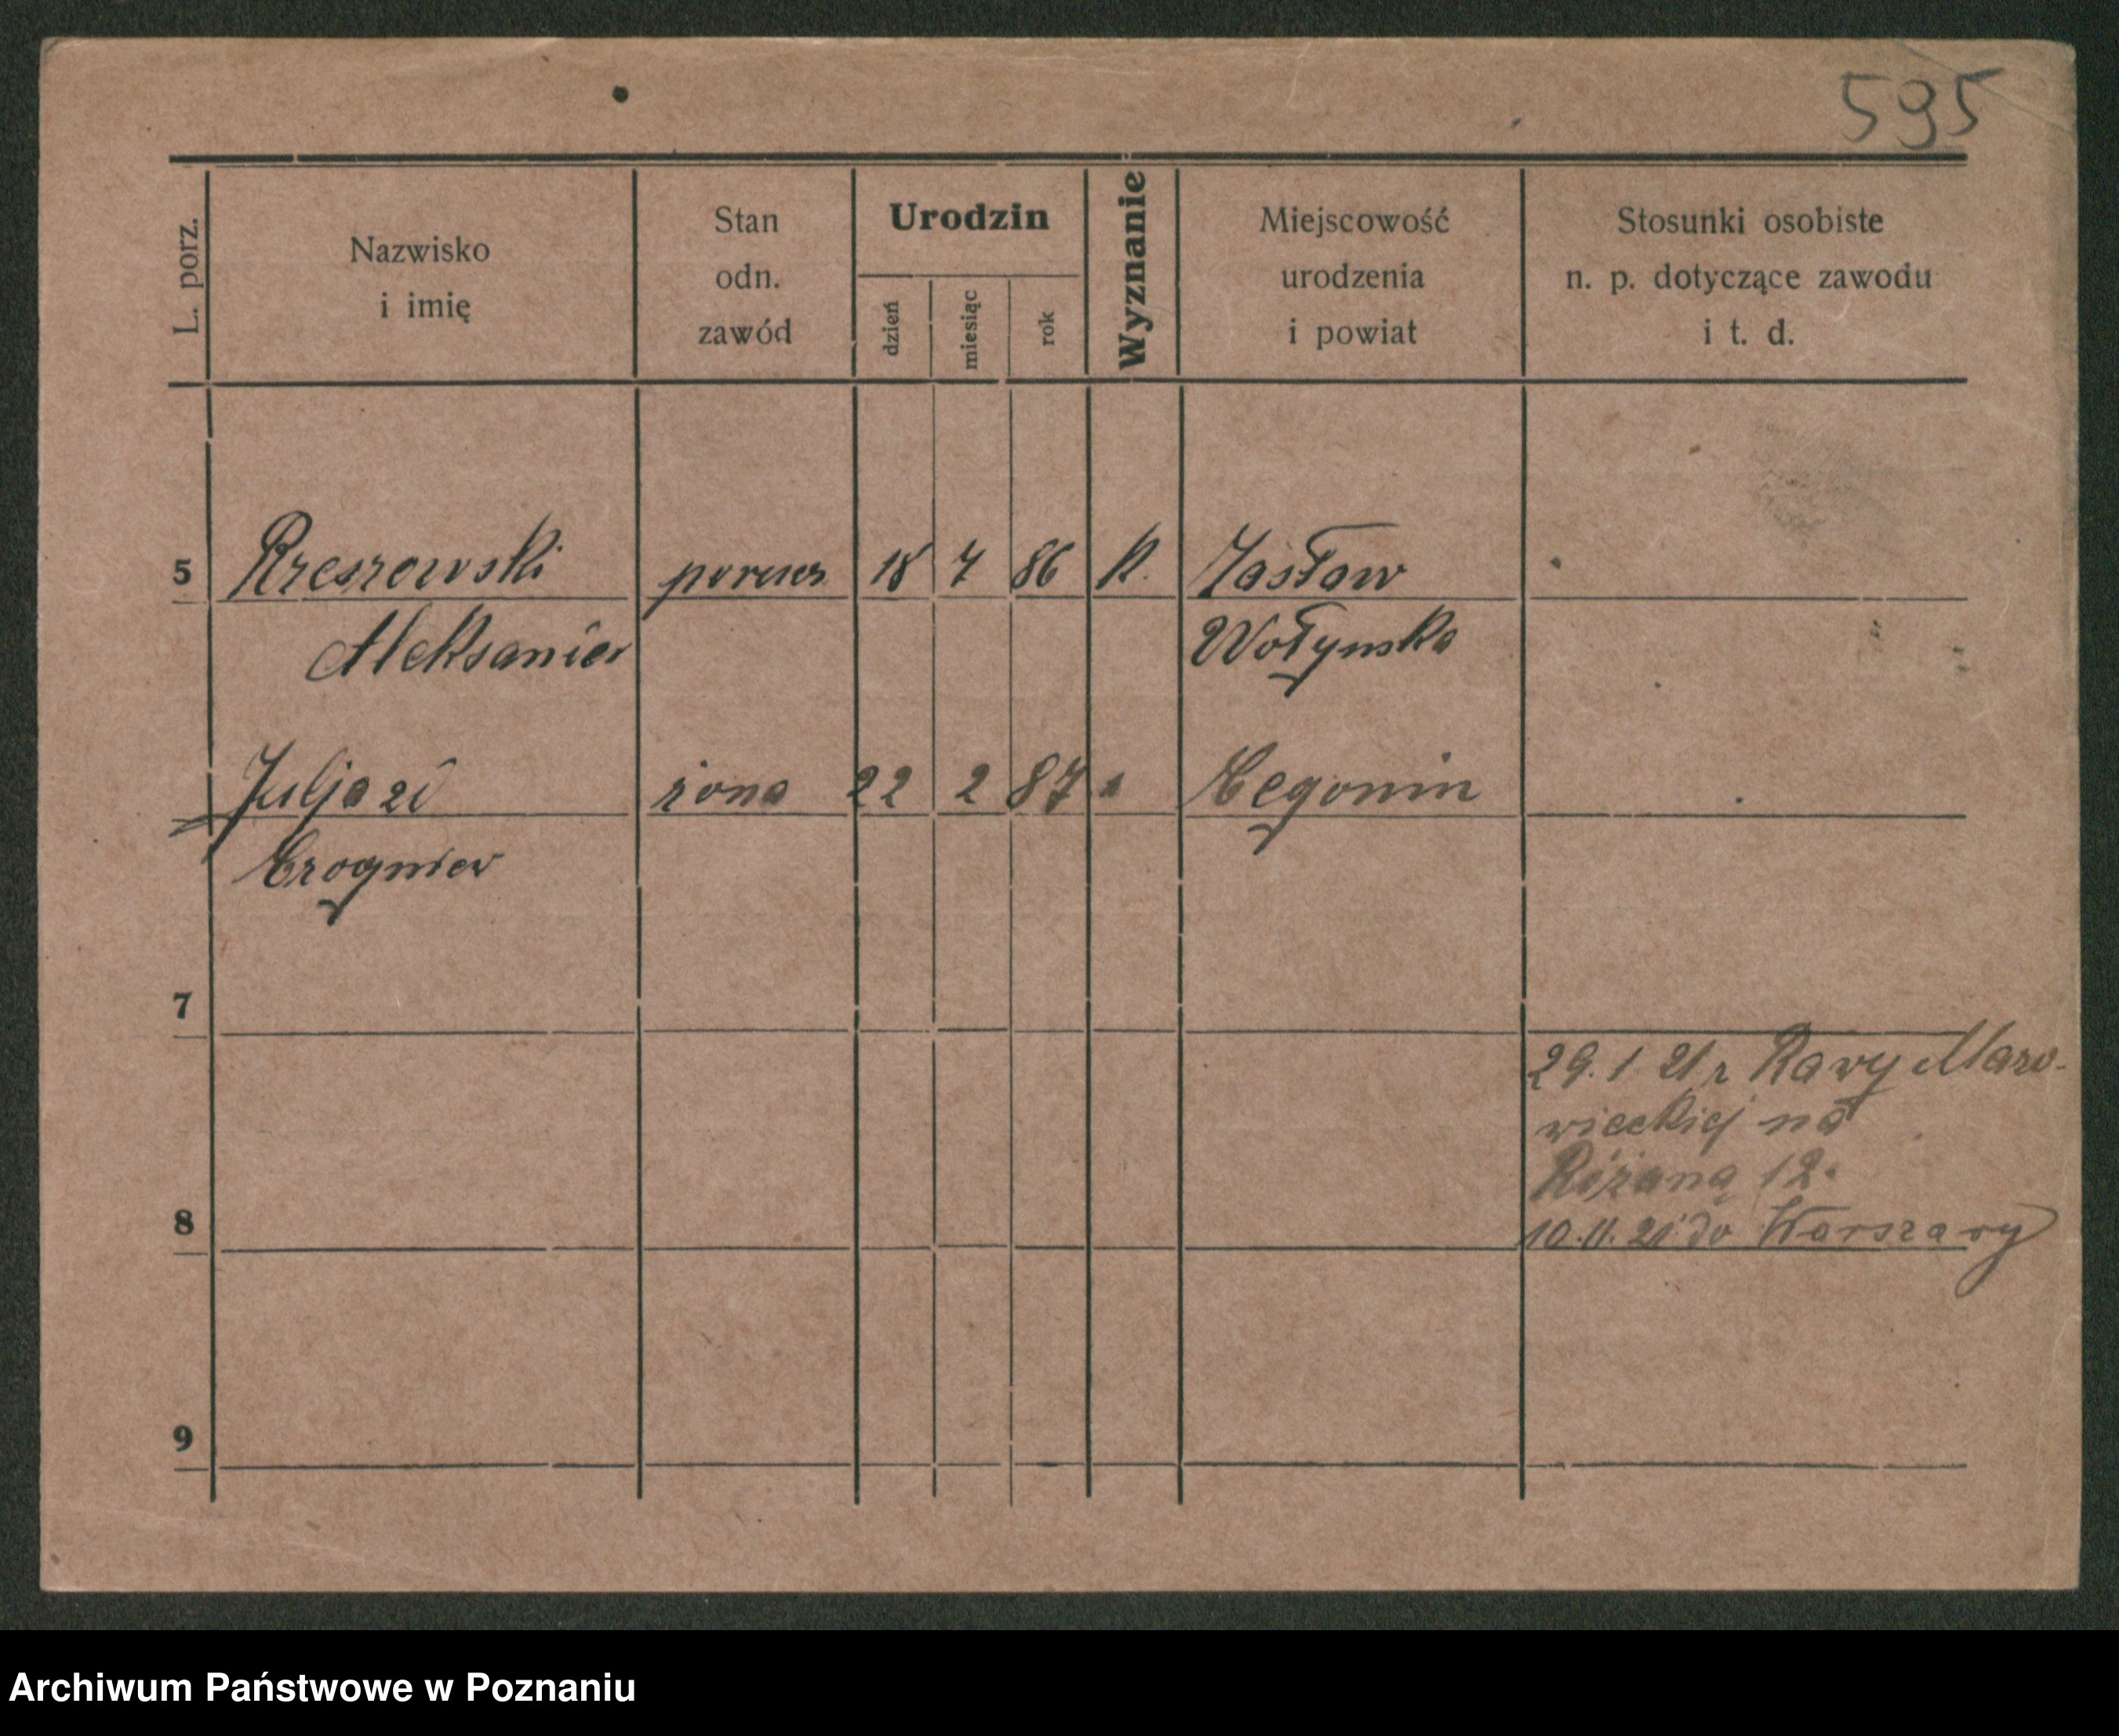 595
L. porz.
Nazwisko
i imię
Stan
odn.
zawód
Urodzin
dzień
miesiąc
rok
Wyznanie
Miejscowość
urodzenia
i powiat
Stosunki osobiste
n. p. dotyczące zawodu
i t. d.
5 Rzeszowski 18 7 86 K. Zasław
Aleksander Wołynska
Julja zd żona 22 2 87
7
29.1 21 z Rawy Mazo-
wieckiej na
Różaną 12.
8 10.11.21 do Warszawy
9
Archiwum Państwowe w Poznaniu